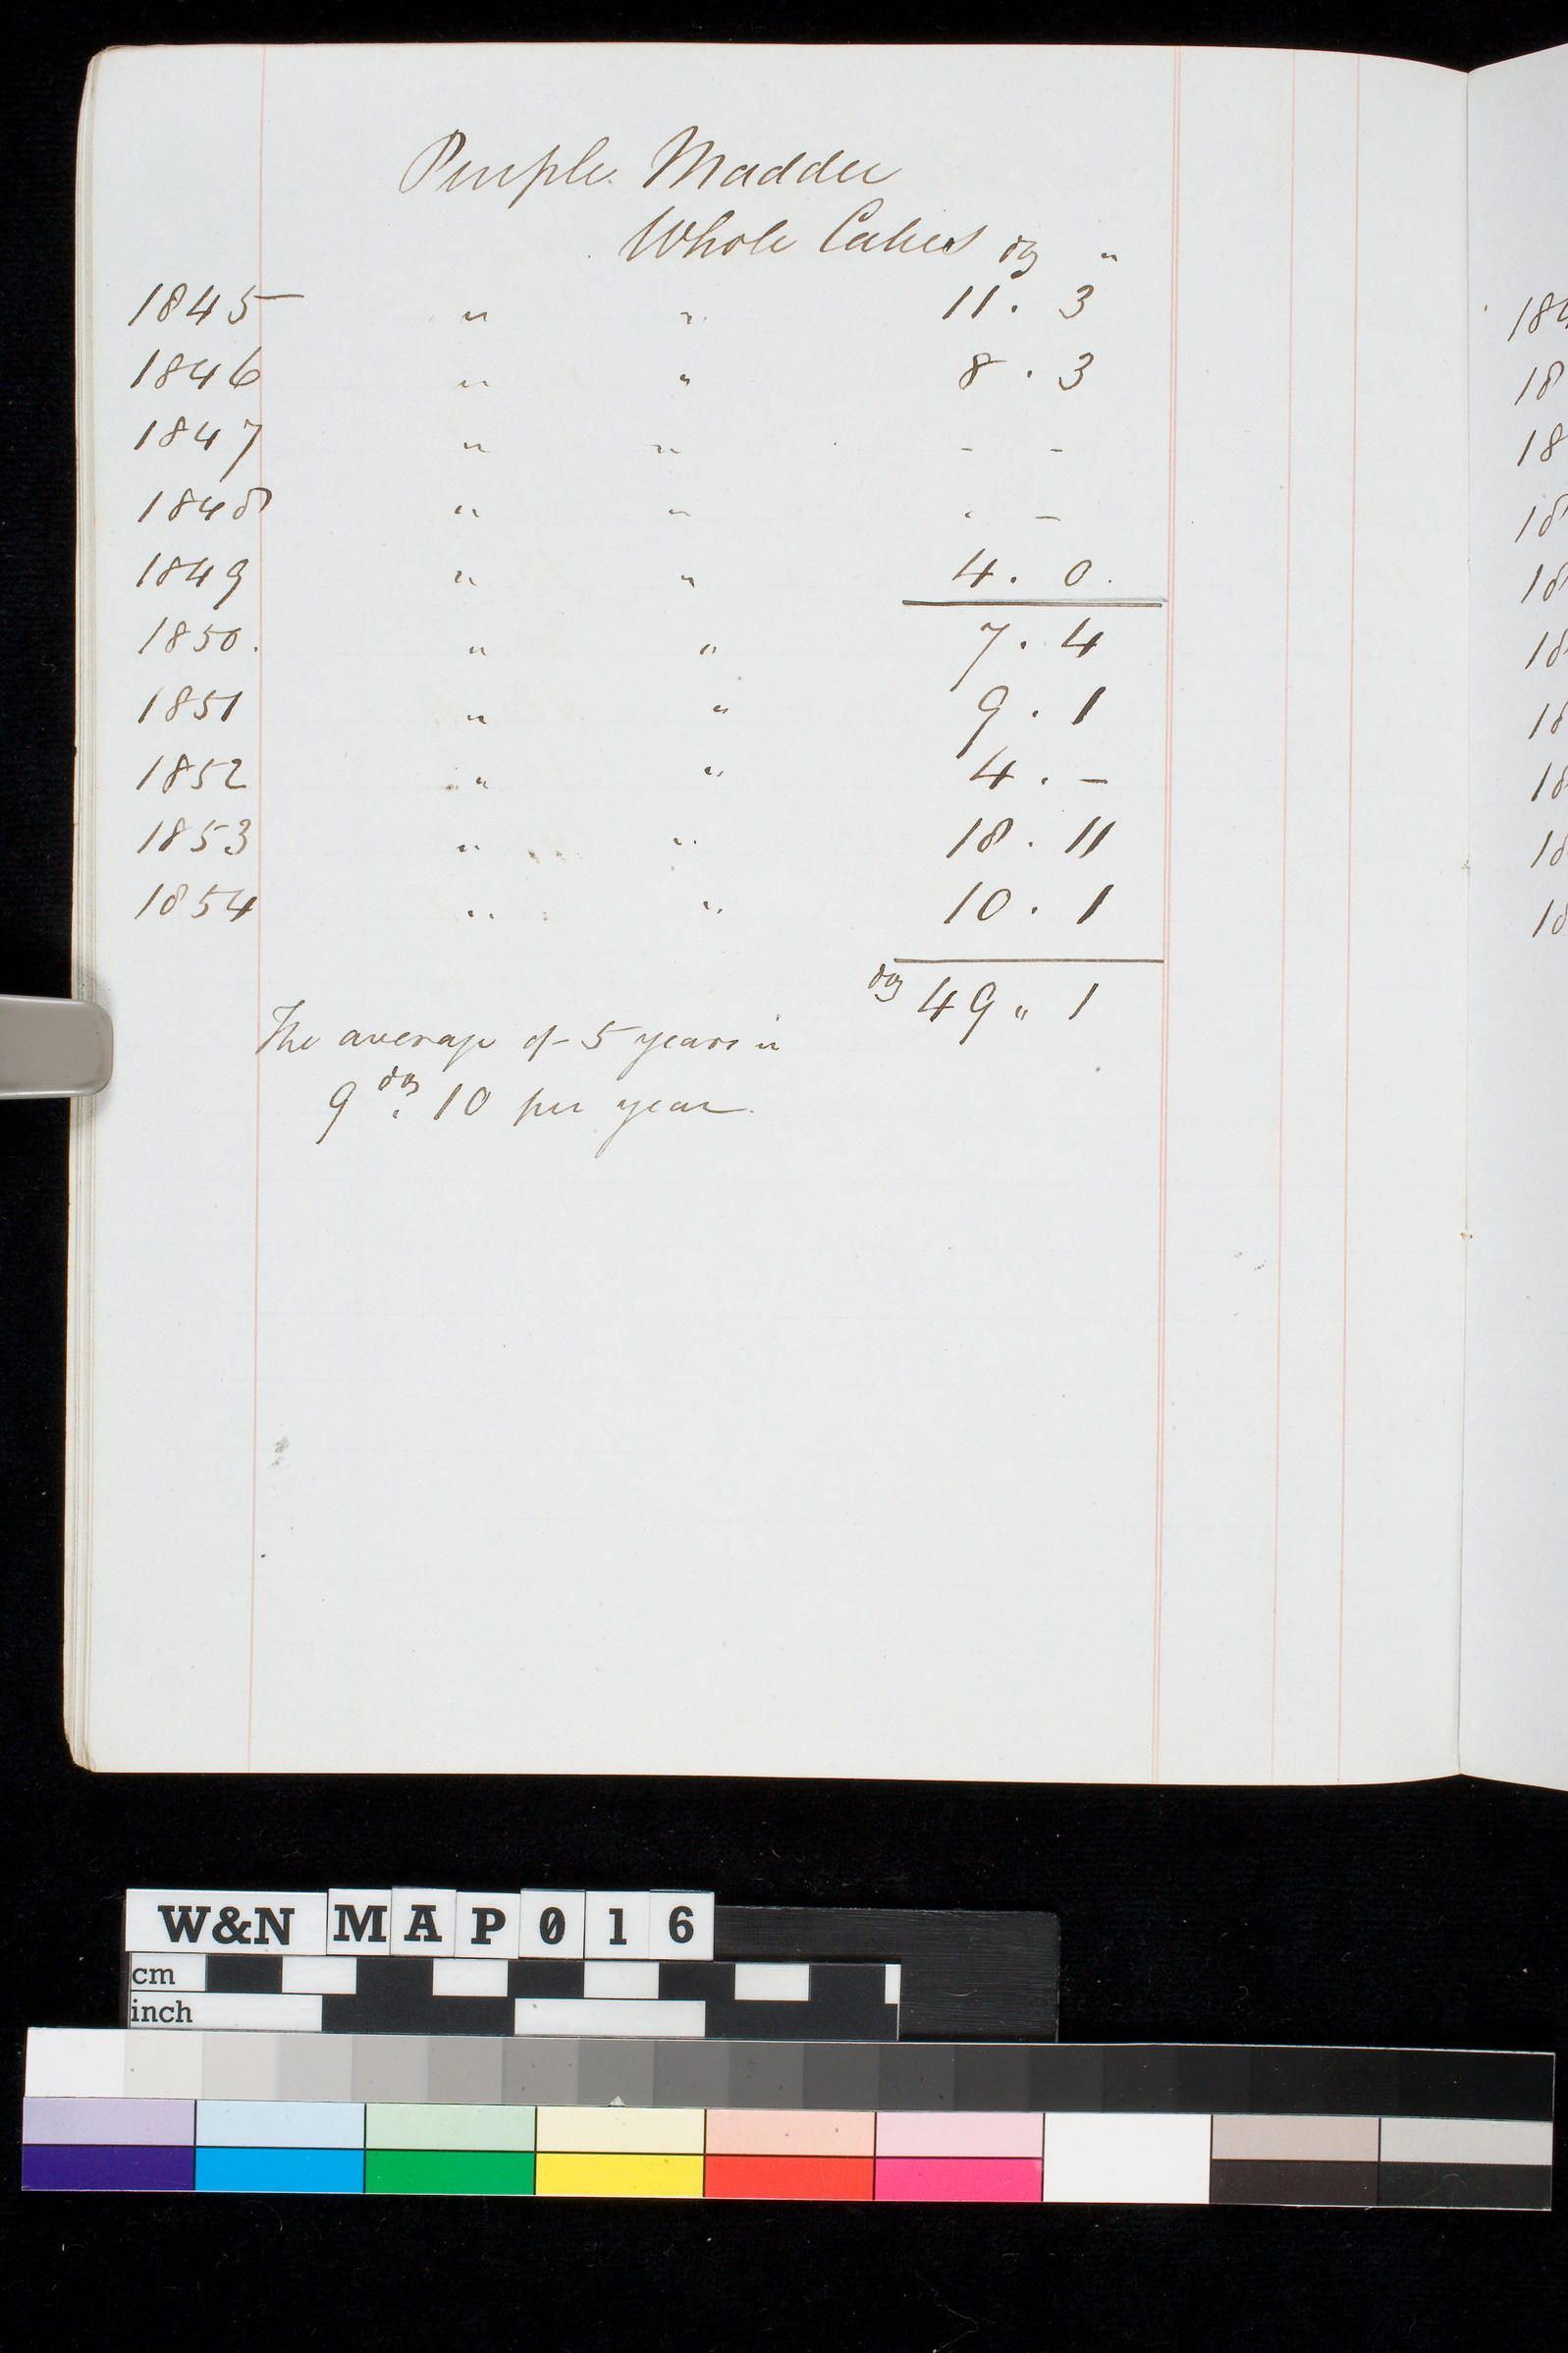 Purple Madder
Whole Cakes doz "
1845 " " 11 . 3
1846 " " 8 . 3
1847 " " - -
1848 " " - -
1849 " " 4 . 0
1850. " " 7 . 4
1851 " " 9 . 1
1852 " " 4 . -
1853 " " 18 . 11
1854 " " 10 . 1
doz 49 " 1
The average of 5 years is
9 doz . 10 per year.
184
18
18
18
18
18
18
18
18
18
W&N MAP016
cm
inch